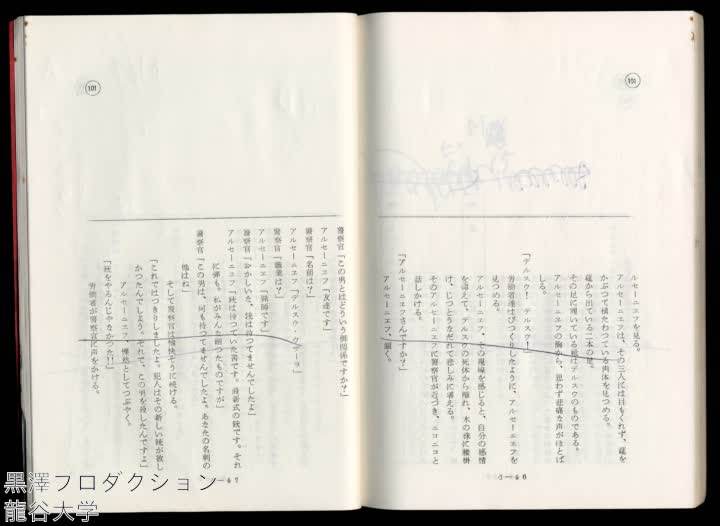 101
ルセーニエフを見る。
アルセーニエフは、その三人には目もくれず、莚を
かぶつて横たわつている肉体を見つめる。
莚から出ている二本の足。
その足に覗いている靴はデルスウのものである。
アルセーニエフの胸から、思わず悲痛な声がほとば
しる。
「デルスウ! デルスウ!」
労働者達はびつくりしたように、アルセーニエフを
見つめる。
アルセーニエフ、その視線を感じると、自分の感情
を抑えて、デルスウの死体から離れ、木の株に腰掛
け、じつとうなだれて悲しみに堪える。
そのアルセーニエフに警察官が近づき、ニコニコと
話しかける。
「アルセーニエフさんですか?」
アルセーニエフ、頷く。
101
警察官「この男とはどういう御関係ですか?」
アルセーニエフ「友達です」
警察官「名前は?」
アルセーニエフ「デルスウ・ウザーラ」
警察官「職業は?」
アルセーニエフ「猟師です」
警察官「おかしいな、銃は持つてませんでしたよ」
アルセーニエフ「銃は持つていた筈です。最新式の銃です。それ
に弾も。私がみんな贈つたものですが」
警察官「この男は、何も持つてませんでしたよ。あなたの名刺の
他はね」
そして警察官は愉快そうに続ける。
「これではつきりしましたよ。犯人はその新しい銃が欲し
かつたんでしよう。それで、この男を殺したんですよ」
アルセーニエフ、愕然としてつぶやく。
「銃をやるんじやなかつた!!」
労働者が警察官に声をかける。
黒澤プロダクション
龍谷大学